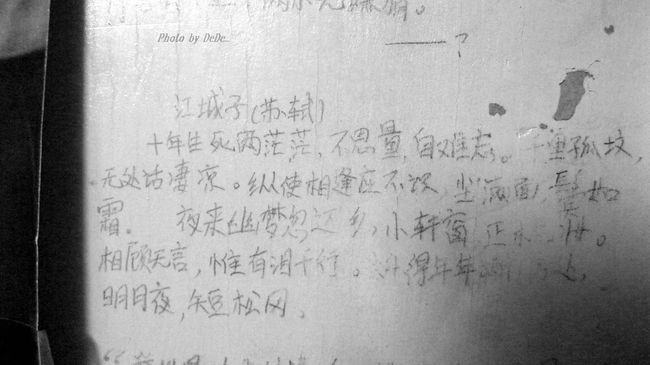 Photo by DeDe...
——?
江城子(苏轼)
十年生死两茫茫,不思量,自难忘。千里孤坟,
无处话凄凉。纵使相逢应不识,尘满面,鬓如
霜。 夜来幽梦忽还乡,小轩窗,正梳妆。
相顾无言,惟有泪千行。料得年年
明月夜,短松冈。